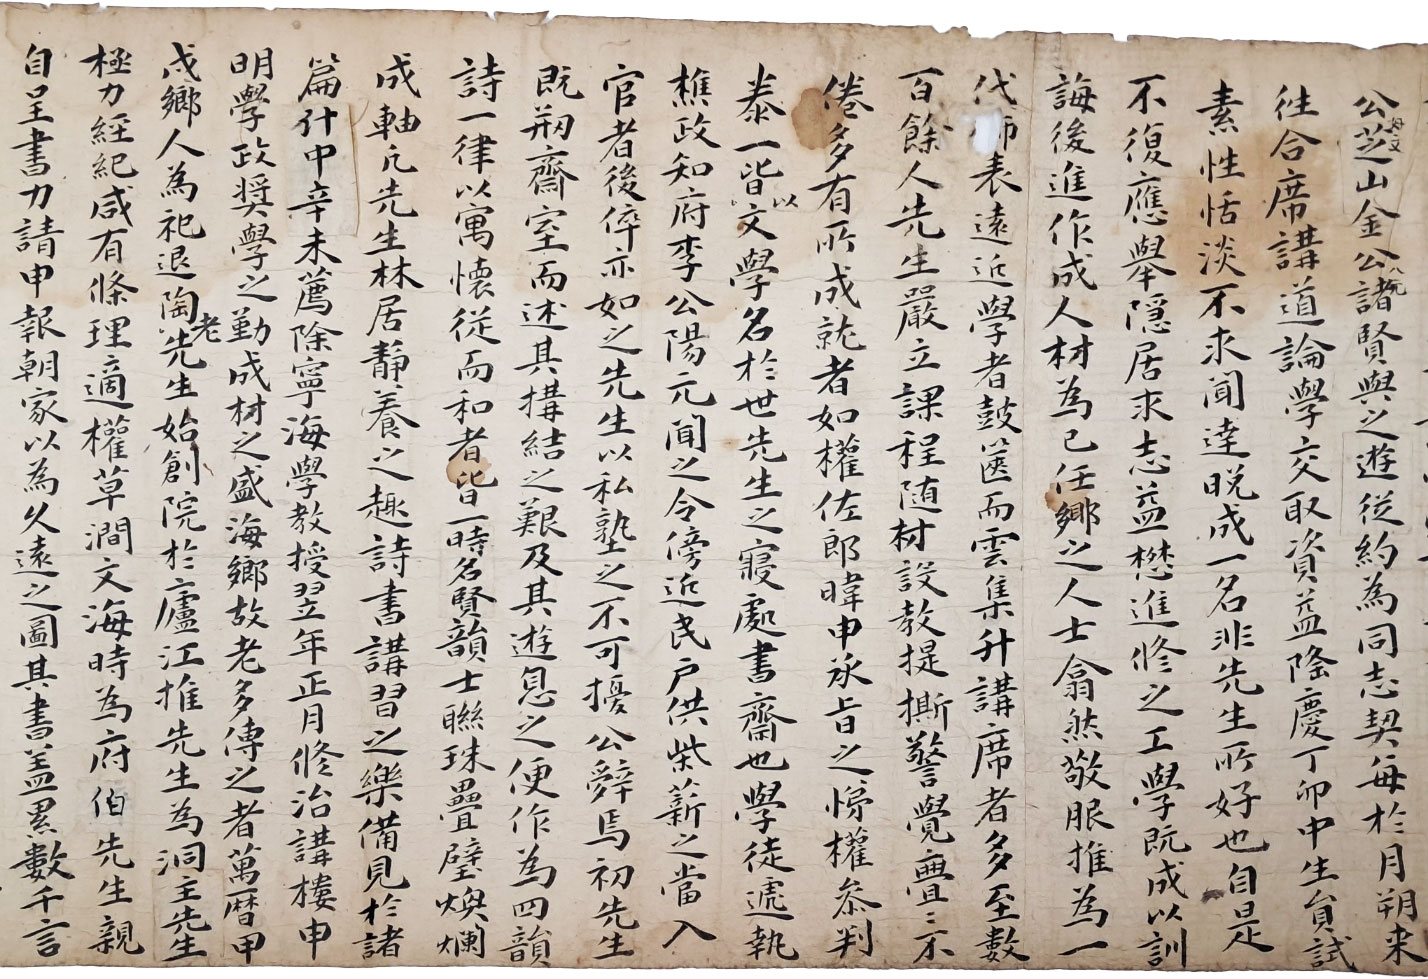 公芝山金公八元諸賢與之遊從約為同志契每於月朔来
徃合席講道論學交取資益隆慶丁卯中生員試
素性恬淡不求聞達晩成一名非先生所好也自是
不復應舉隠居求志益懋進修之工學旣成以訓
誨後進作成人材為己任鄉之人士翕然敬服推為一
代師表遠近學者鼓篋而雲集升講席者多至數
百餘人先生嚴立課程随材設教提撕警覺亹〻不
倦多有所成就者如權佐郎暐申承旨之悌權叅判
泰一皆以文學名於世先生之寢處書齋也學徒遞執
樵政知府李公陽元聞之令傍近民戶供柴薪之當入
官者後倅亦如之先生以私塾之不可擾公辤焉初先生
旣剏齋室而述其搆結之艱及其遊息之便作為四韻
詩一律以寓懷從而和者皆一時名賢韻士聯珠疊璧煥爛
成軸凢先生林居靜養之趣詩書講習之樂備見於諸
篇什中辛未薦除寧海學教授翌年正月修治講樓申
明學政奨學之勤成材之盛海鄉故老多傳之者萬曆甲
戌鄉人為祀退陶老先生始創院於廬江推先生為洞主先生
極力経紀咸有條理適權草澗文海時為府伯先生親
自呈書力請申報朝家以為久遠之圖其書盖累數千言